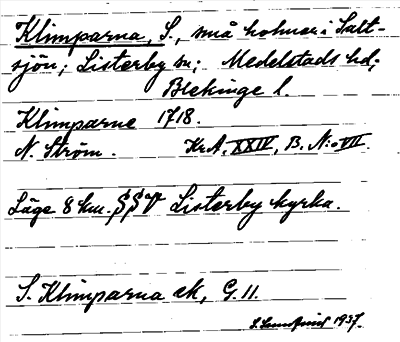 Klimparna, S., små holmar i Salt-
sjön; Listerby sn; Medelstads hd;
Blekinge l.
Klimparne 1718.
N. Ström. Kr.A. XXIV, B. N:o VII.
Läge 8 km. SSV Listerby kyrka.
S. Klimparna ek, G. 11.
S. Lundqvist 1937.